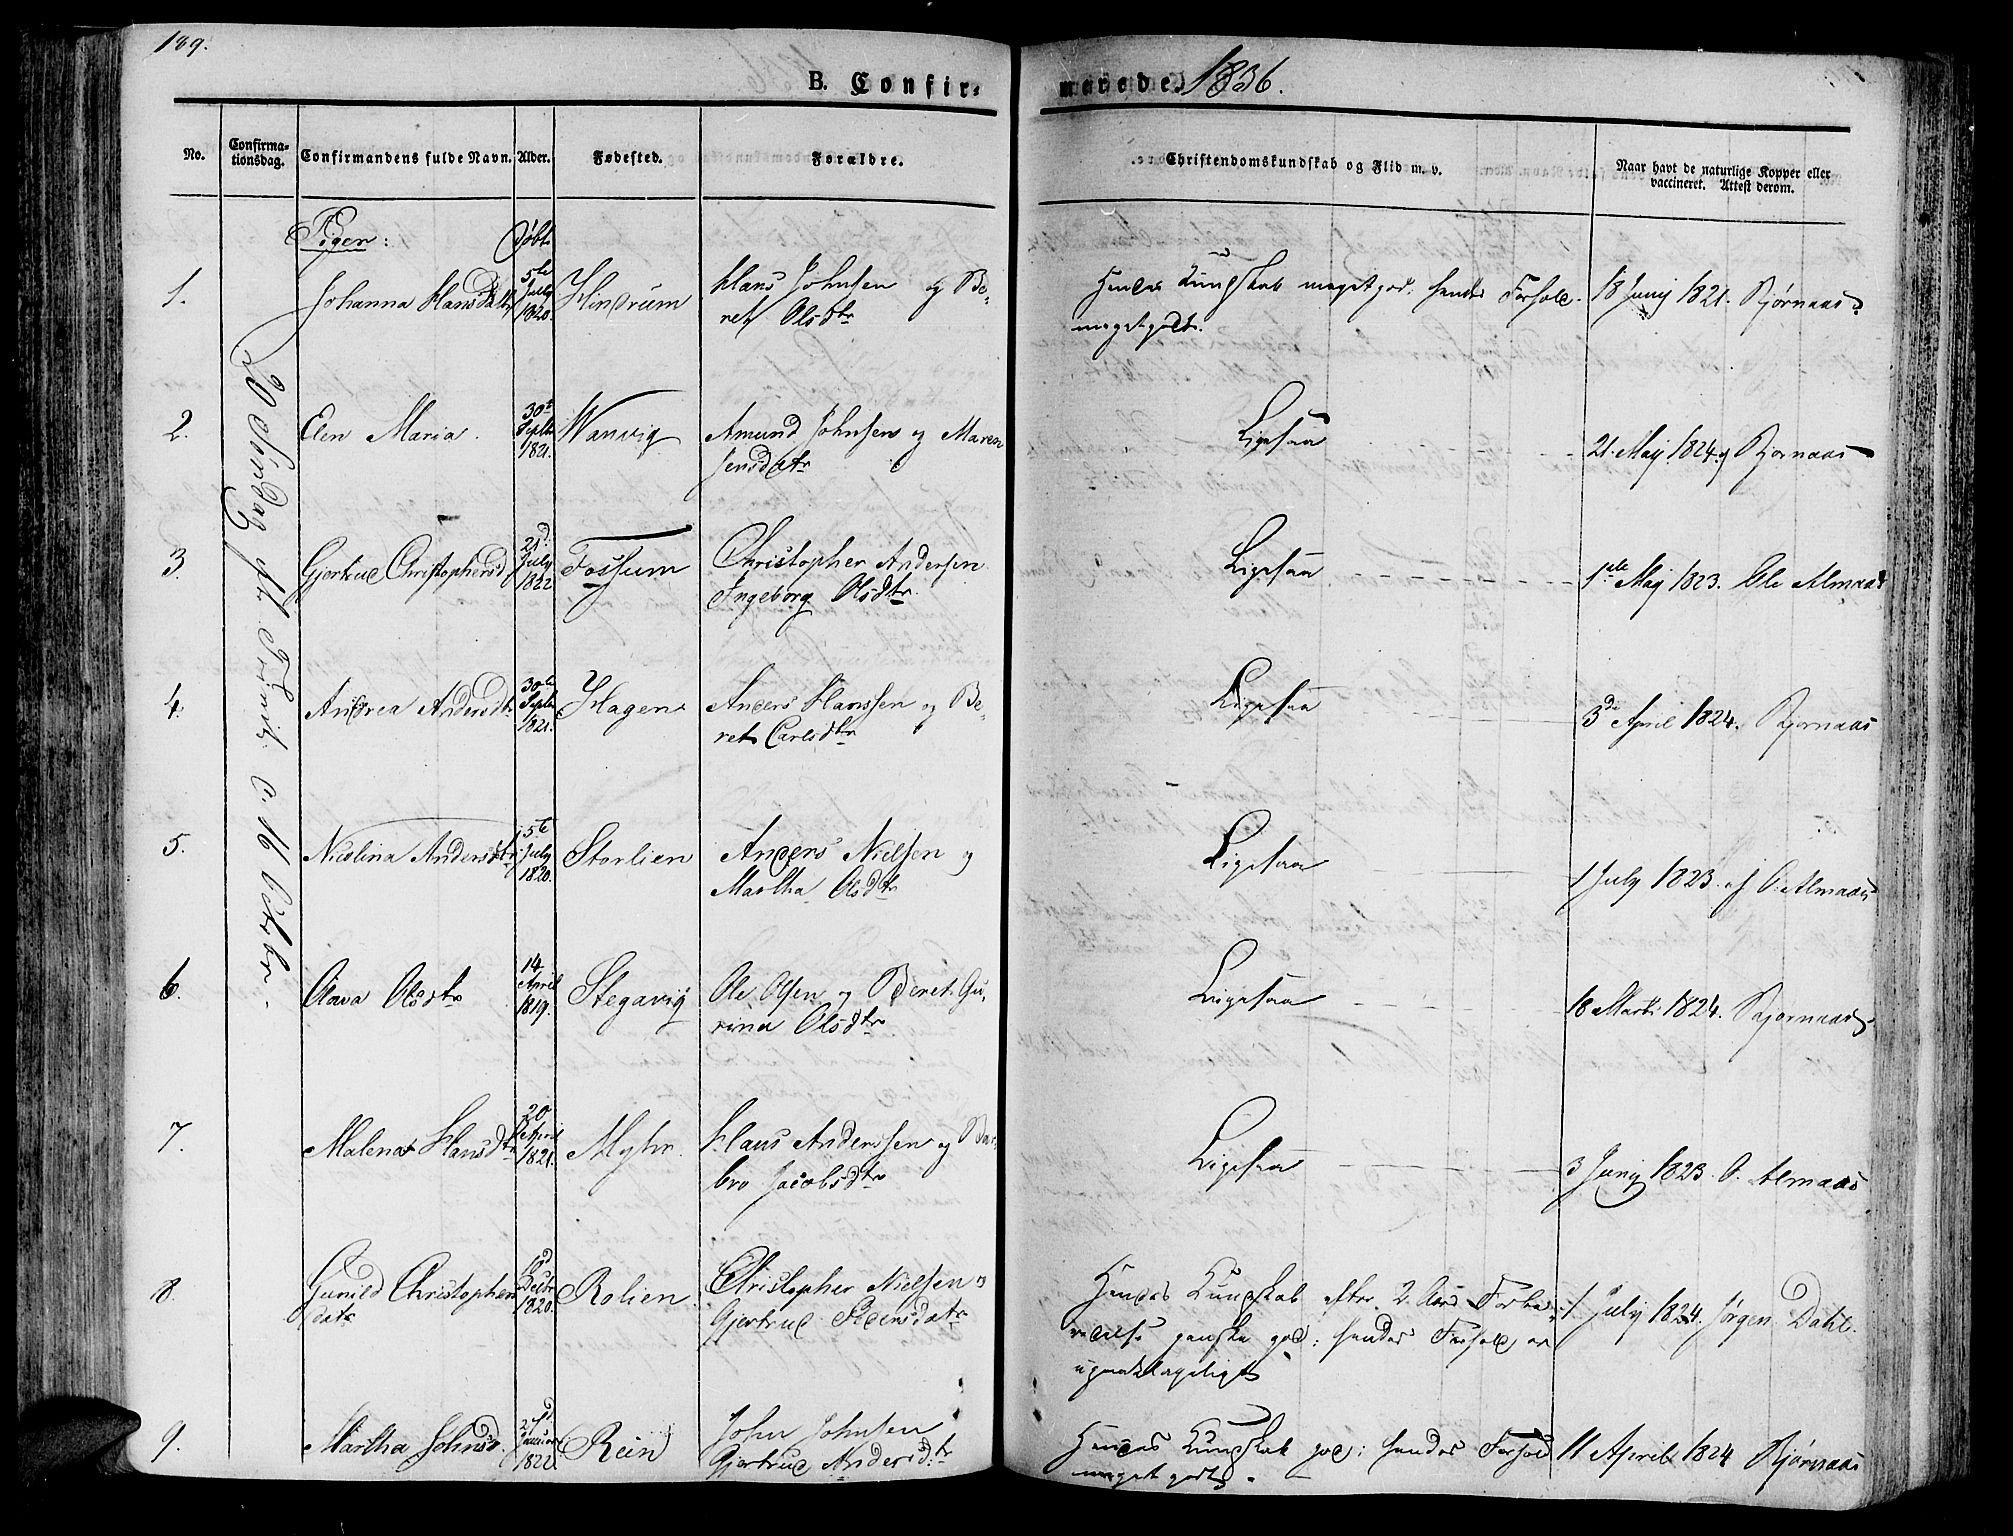 189.
B. Confir-
marede 1836.
No.
Confirma-
tionsdag.
Confirmandens fulde Navn.
Alder.
Fødested.
Forældre.
Christendomskundskab og Flid m. v.
Naar havt de naturlige Kopper eller
vaccineret. Attest derom.
Piger:
Døbt
20 Søndag p. Trinit. d. 16 Octobr.
1.
Johanna Hansdatr
5te July 1820.
Hindrum
Hans Johnsen og Be-
ret Olsdtr
Hendes Kundskab meget god; hendes Forhold
meget godt.
18 Junij 1821. Bjørnaas
2.
Elen Maria.
30te Septbr 1821.
Wanvig
Amund Johnsen og Maren
Jensdatr
Ligesaa
21. Maij 1824 af Bjørnaas
3.
Gjertrud Christophersd
21d July 1822
Fossum
Christopher Andersen
Ingeborg Olsdtr.
Ligesaa
1ste Maj 1823. Ole Almaas
4.
Andrea Andersdtr
30te Septbr 1821.
Hagen
Anders Hanssen og Be-
ret Carlsdtr
Ligesaa
3de April 1824. Bjørnaas
5.
Nicolina Andersdtr
5te July 1820.
Storlien
Anders Nielsen og
Martha Olsdtr
Ligesaa
1 July 1823. af O. Almaas
6.
Olava Olsdtr
14 April 1819.
Stegavig
Ole Olsen og Beret Gu-
rina Olsdtr
Ligesaa
18 Marts 1824. Bjørnaas
7.
Malena Hansdtr
20 April 1821.
Myhr.
Hans Anderssen og Bar-
bro Jacobsdtr
Ligesaa
3 Junij 1823. O. Almaas
8.
Gunild Christophers
datr
Decbr 1820.
Rolien
Christopher Nielsen og
Gjertrud Pedersdatr
Hendes Kundskab efter 2 Aars Forbe-
redelse ganske god; hendes Forhold er
upaaklageligt
1 July 1824. Jørgen Dahl.
9.
Martha Johnsd.
27d. Januar 1822.
Rein
John Johnsen
Gjertrud Andersd:tr
Hendes Kundskab god; hendes Forhold
meget godt.
11 April 1824 Bjørnaas